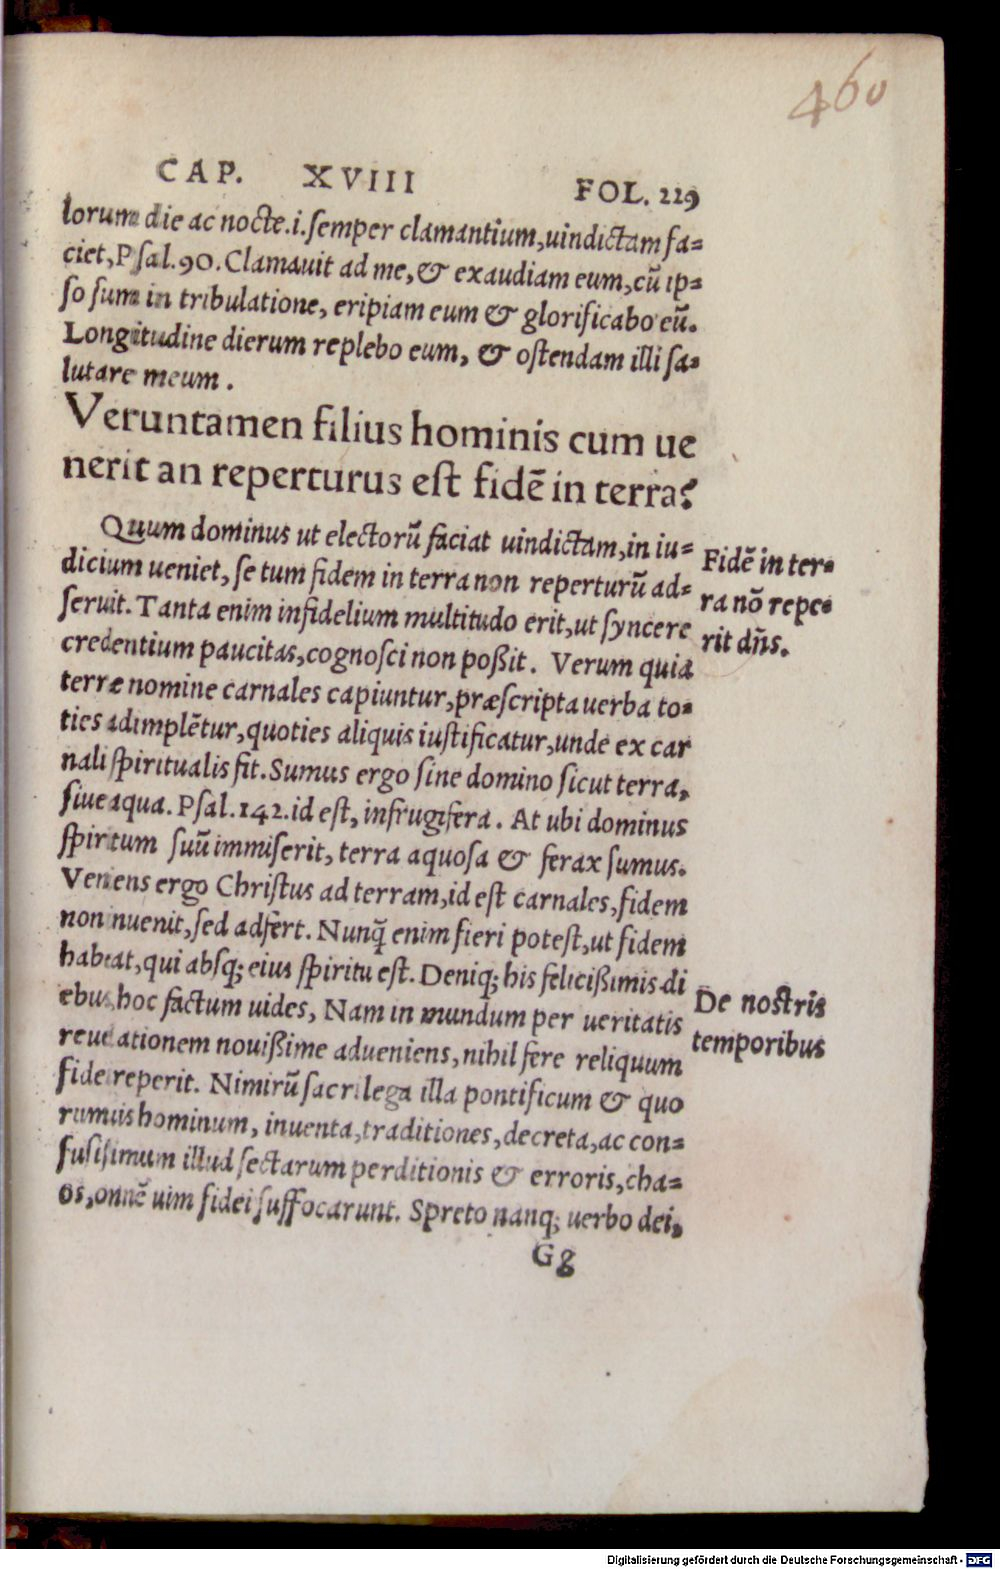 460
CAP. XVIII FOL. 229
lorum die ac nocte.i.semper clamantium,uindictam fa=
ciet,Psal.90.Clamauit ad me,& exaudiam eum,cũ ip=
so sum in tribulatione, eripiam eum & glorificabo eũ.
Longitudine dierum replebo eum, & ostendam illi sa=
lutare meum.
Veruntamen filius hominis cum ue
nerit an reperturus est fidẽ in terra?
Quum dominus ut electorũ faciat uindictam,in iu=
dicium ueniet, se tum fidem in terra non reperturũ ad=
seruit. Tanta enim infidelium multitudo erit,ut syncere
credentium paucitas,cognosci non poßit. Verum quia
terræ nomine carnales capiuntur,præscripta uerba to=
ties adimplẽtur,quoties aliquis iustificatur,unde ex car
nali spiritualis fit.Sumus ergo sine domino sicut terra,
siue aqua. Psal.142.id est, infrugifera. At ubi dominus
spiritum suũ immiserit, terra aquosa & ferax sumus.
Veniens ergo Christus ad terram,id est carnales,fidem
non inuenit,sed adfert. Nunq̃ enim fieri potest,ut fidem
habeat,qui absq; eius spiritu est. Deniq; his felicißimis di
ebus hoc factum uides, Nam in mundum per ueritatis
reuelationem nouißime adueniens,nihil fere reliquum
fidei reperit. Nimirũ sacrilega illa pontificum & quo
rumuis hominum, inuenta,traditiones,decreta,ac con=
fusissimum illud sectarum perditionis & erroris,cha=
os,omnẽ uim fidei suffocarunt. Spreto nanq; uerbo dei,
Gg
Fidẽ in ter=
ra nõ repe=
rit dñs.
De nostris
temporibus
Digitalisierung gefördert durch die Deutsche Forschungsgemeinschaft - DFG